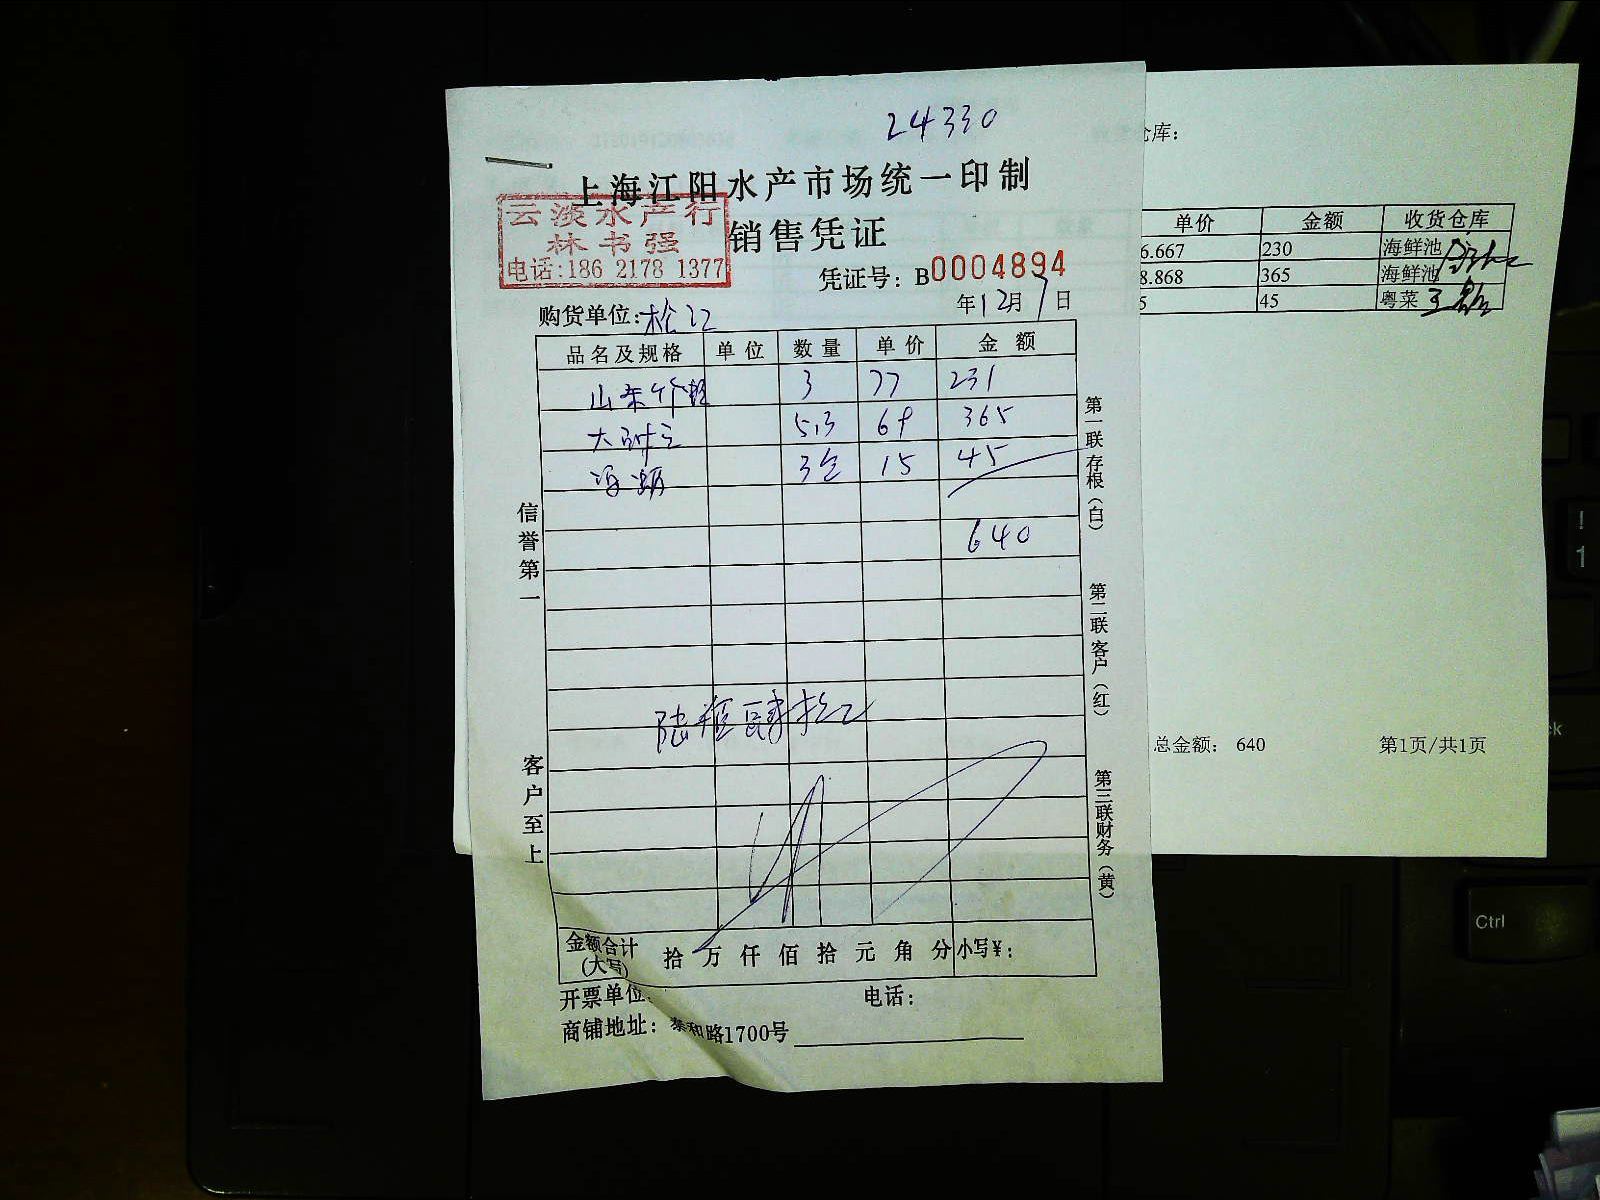 24330
上海江阳水产市场统一印制
云淡水产行
林书强
电话:186 2178 1377
销售凭证
凭证号: B0004894
年12月7日
购货单位:松江
品名及规格 单位 数量 单价 金额
山东 3 77 231
大 5.3 69 365
海 3 15 45
640
陆佰肆拾元
金额合计(大写) 拾万仟佰拾元角分 小写¥:
开票单位:
电话:
商铺地址: 泰和路1700号
信誉第一
客户至上
第一联存根(白)
第二联客户(红)
第三联财务(黄)
仓库:
单价 金额 收货仓库
6.667 230 海鲜池
8.868 365 海鲜池
5 45 粤菜
总金额: 640 第1页/共1页
!
1
Ctrl